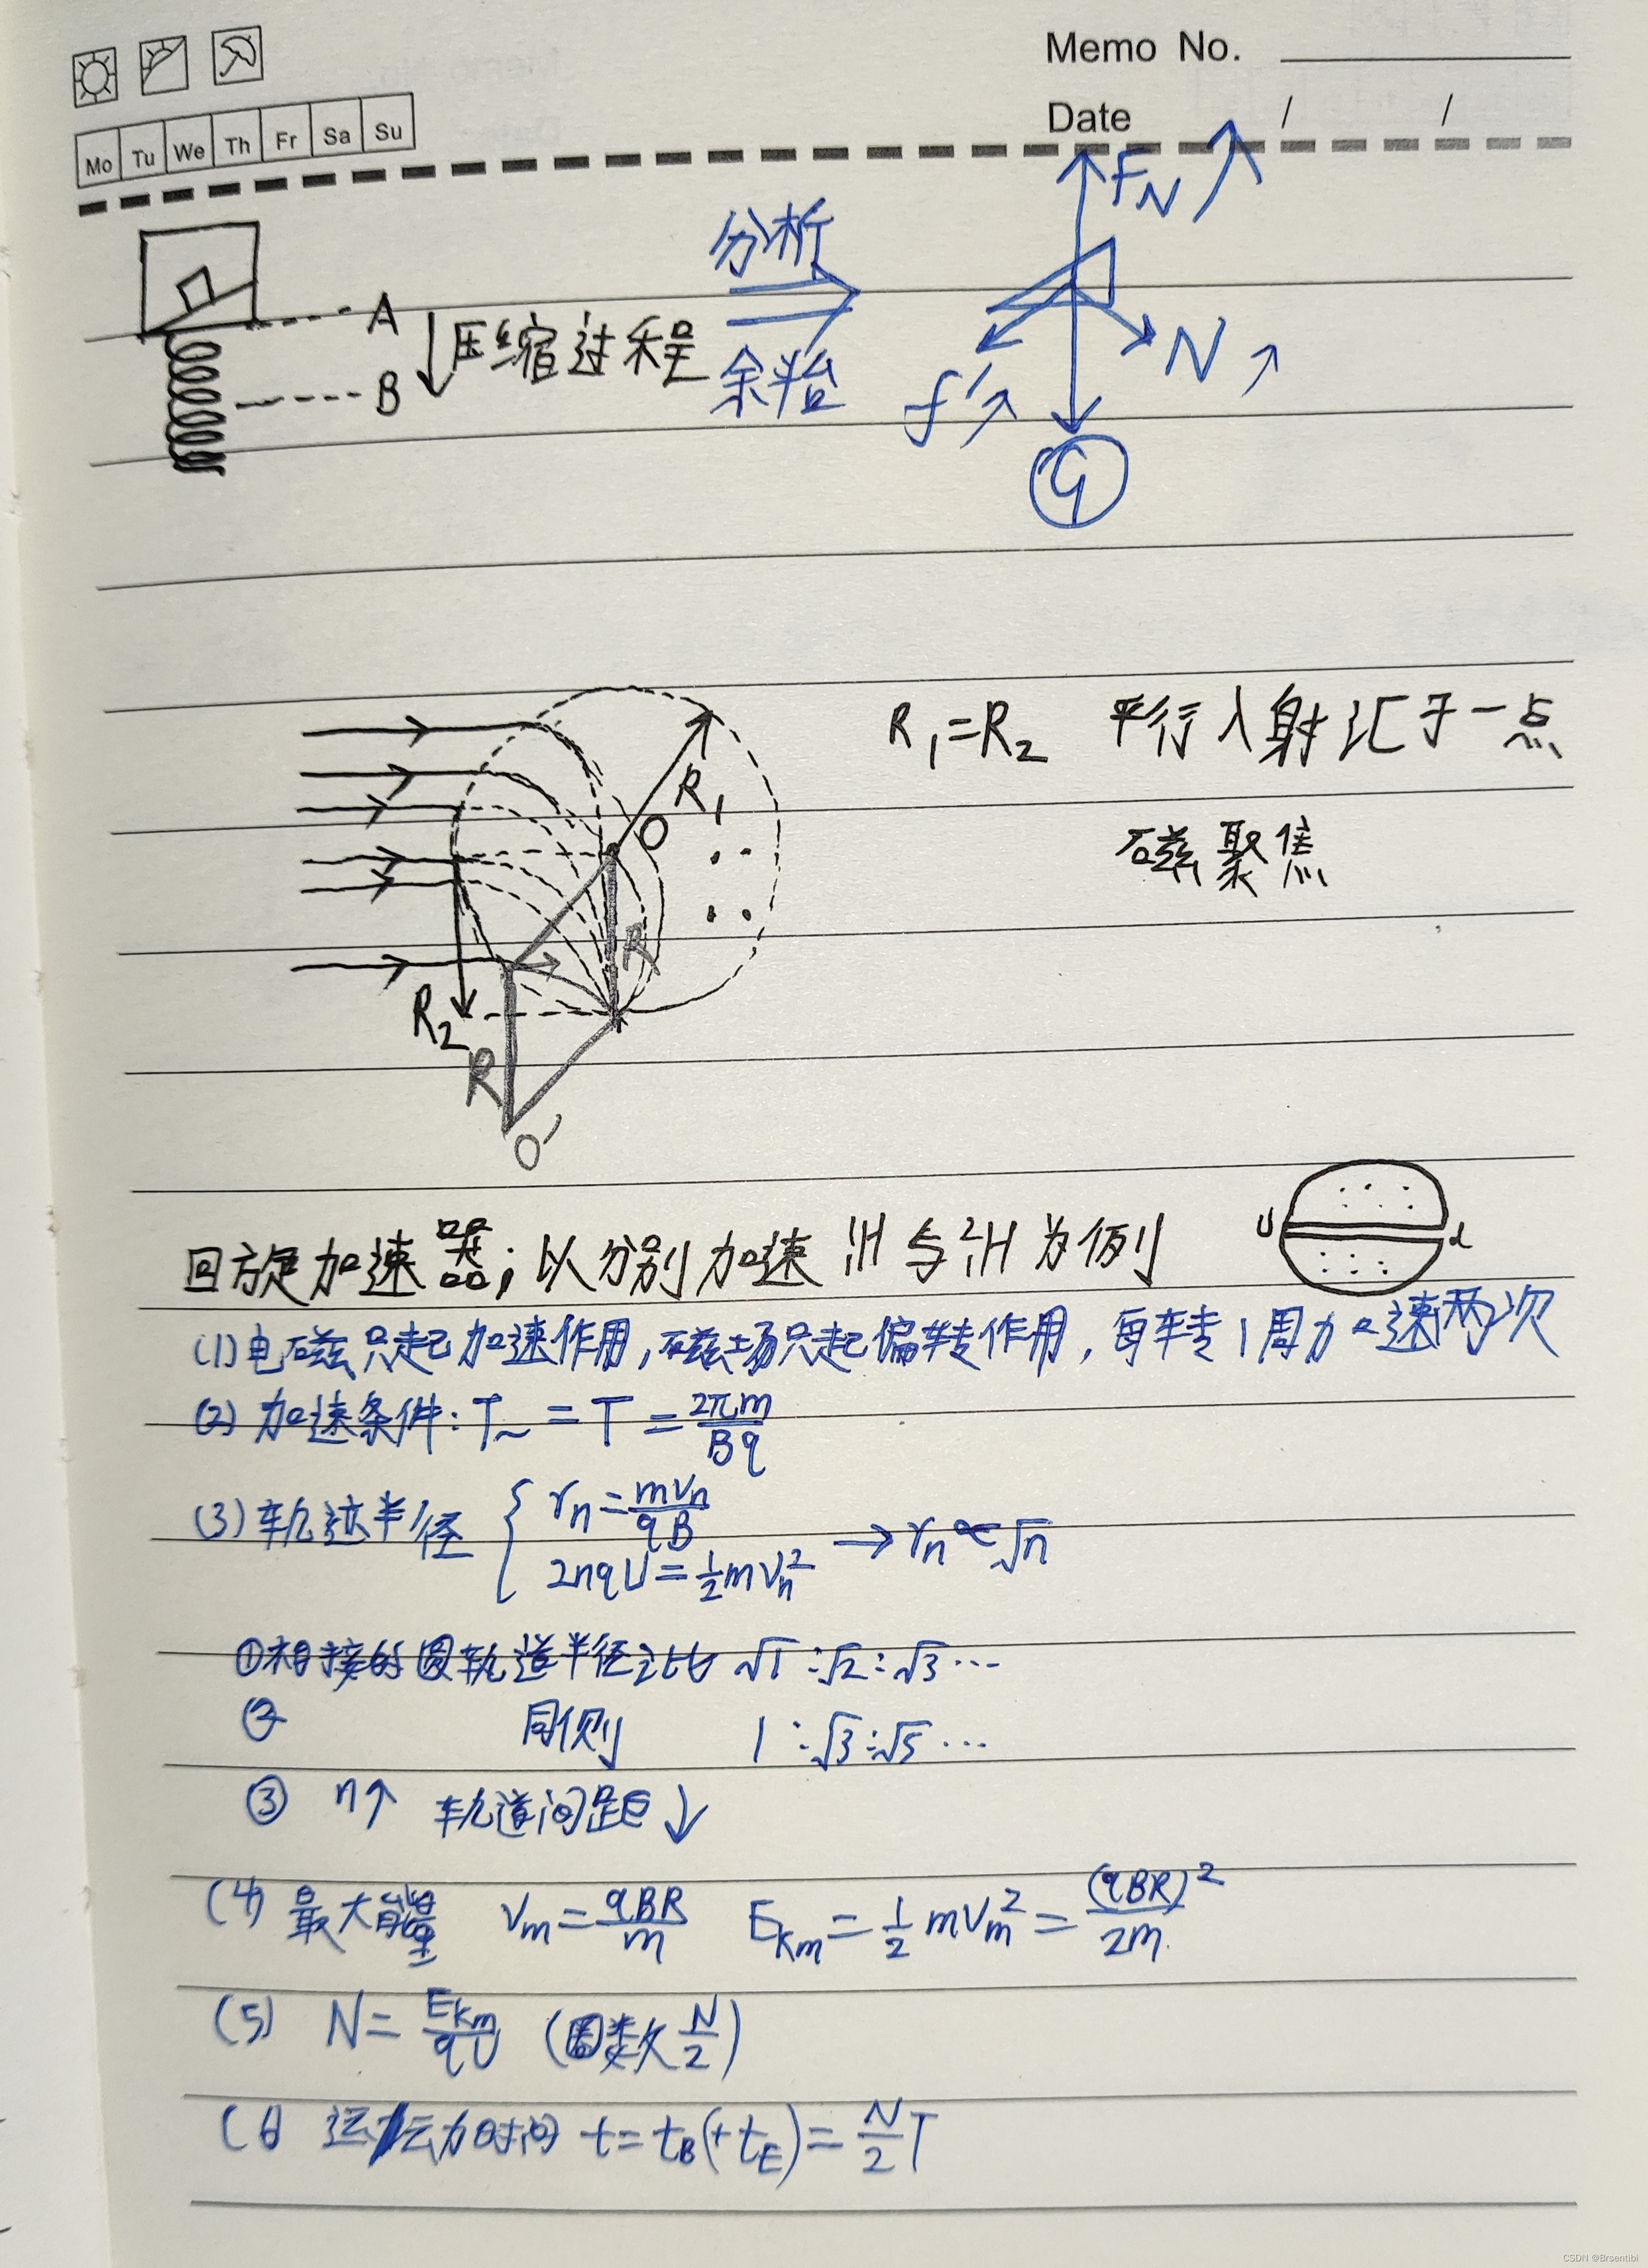 Memo No.
Date / /
Mo Tu We Th Fr Sa Su
A
压缩过程
B
分析
F_N ↗
N ↗
f' ↗
G
R₁=R₂ 平行入射汇于一点
磁聚焦
R₁
O
R
R₂
R
O'
回旋加速器;以分别加速 ¹₁H 与 ²₁H 为例
U d
(1)电磁只起加速作用,磁场只起偏转作用,每转1周加速两次
(2) 加速条件:T~ = T = 2πm/Bq
(3)轨迹半径 { rₙ=mvₙ/qB
2nqU=½mvₙ² → rₙ∝√n
①相接的圆轨道半径之比 √1:√2:√3…
② 同侧 1:√3:√5…
③ n↑ 轨道间距↓
(4) 最大能量 vₘ=qBR/m Eₖₘ=½mvₘ²=(qBR)²/2m
(5) N=Eₖₘ/qU (圈数 N/2)
(6 运动时间 t=t_B(+t_E)=N/2 T
CSDN @Brsentibi